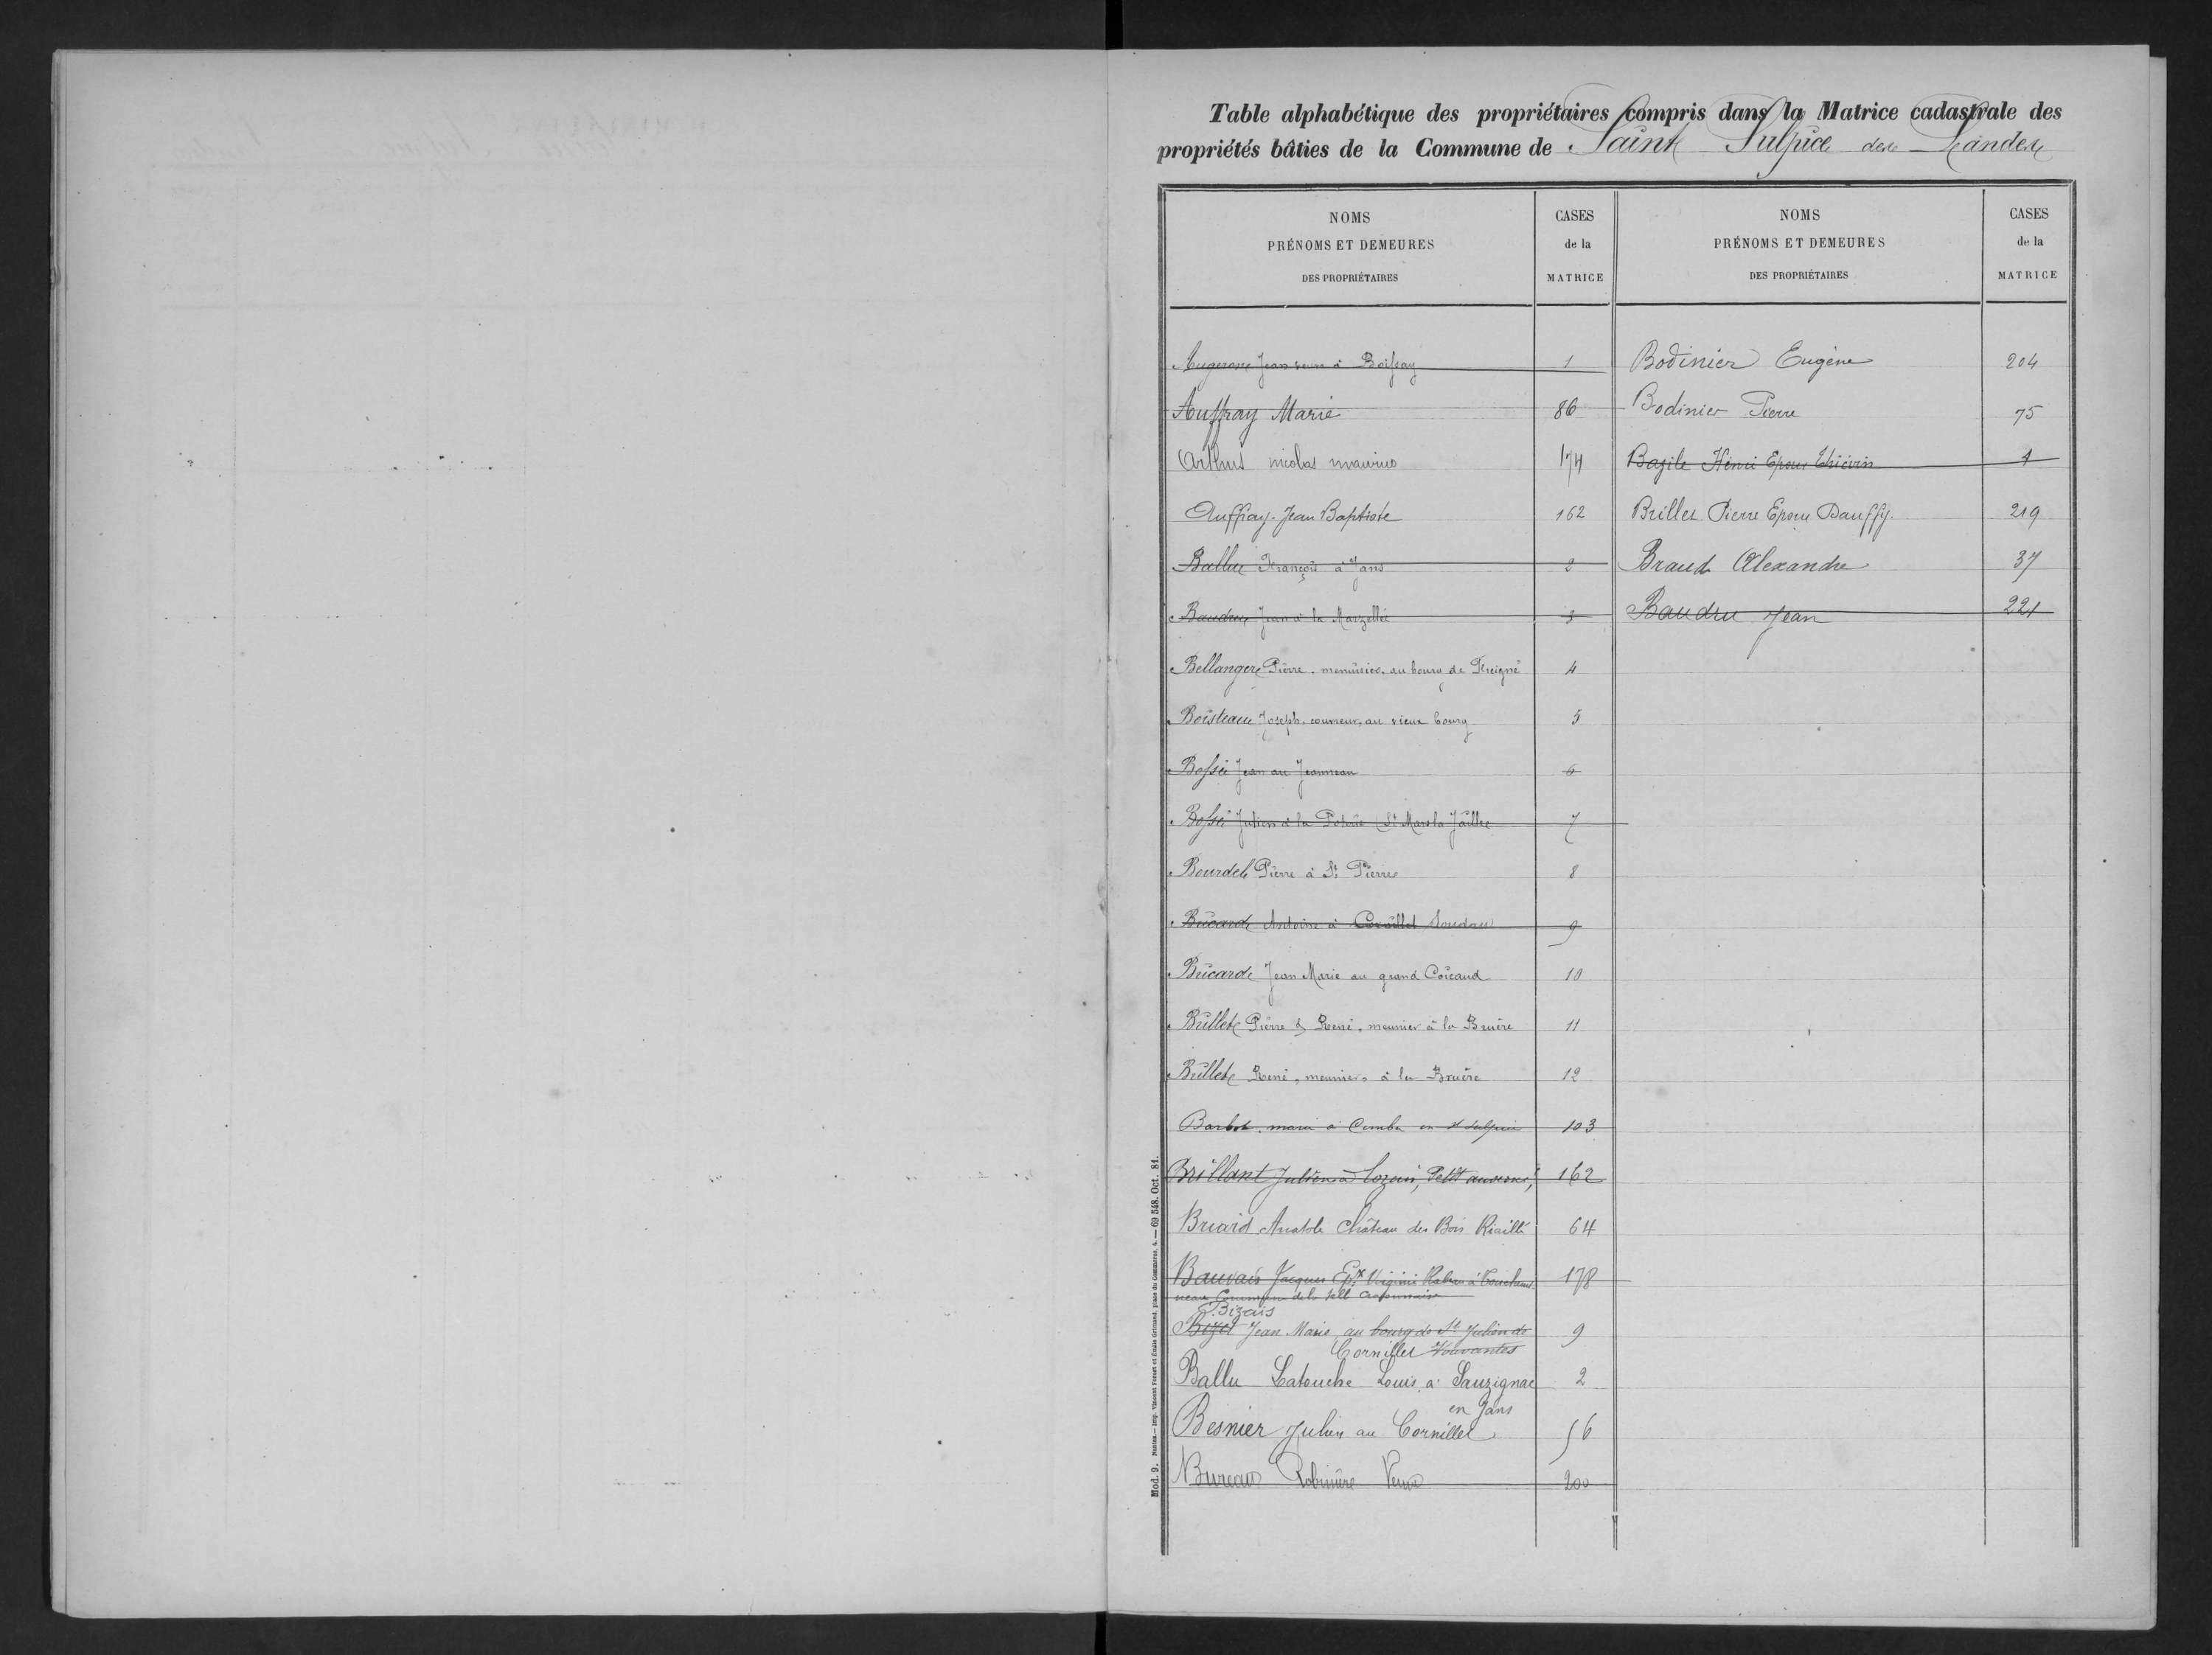 Table alphabétique des propriétaires compris dans la Matrice cadastrale des
propriétés bâties de la Commune de Saint Sulpice des Landes
NOMS
PRÉNOMS ET DEMEURES
DES PROPRIÉTAIRES
CASES
de la
MATRICE
NOMS
PRÉNOMS ET DEMEURES
DES PROPRIÉTAIRES
CASES
de la
MATRICE
Jean veuve à Boissay 1
Auffray Marie 86
Arthus nicolas 174
Auffray Jean Baptiste 162
Ballue François à Jans 2
Baudru Jean à la Marzellie 3
Bellanger Pierre, menuisier, au bourg de Freigné 4
Boisteau Joseph, couvreur, au vieux bourg 5
Bossé Jean au Jeanneau 6
Bossé Julien à la Poterie (St Mars la Jaille 7
Bourdel Pierre à St Pierre 8
Bricard Antoine à Cornillet Soudan 9
Bricard Jean Marie au grand Coicaud 10
Brillet Pierre & René, meunier à la Bruère 11
Brillet René, meunier, à la Bruère 12
Barbot, marie à en St Sulpice 103
Brillant Julien à Petit auverné, 162
Briard Anatole Château des Bois Riaillé 64
Bauvais Jacques Epx Virginie à 178
Bizais
Bizel Jean Marie, au bourg de St Julien de 9
Cornillet Vouvantes
Ballu Latouche Louis, à Sauzignac 2
en Jans
Besnier Julien au Cornillet 56
Bureau Robinière Veuve 200
Bodinier Eugène 204
Bodinier Pierre 75
Bazile Henri Epoux Thiévin 1
Brillet Pierre Epoux Dauffy. 219
Braud Alexandre 37
Baudru Jean 221
Mod. 9. Nantes.— Imp. Vincent Forest et Émile Grimaud, place du Commerce, 4. — 69 548. Oct. 81.